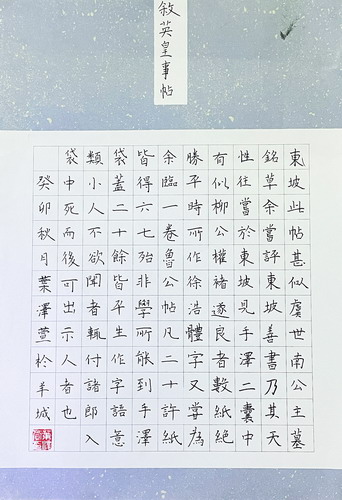 敘英皇事帖
東坡此帖甚似虞世南公主墓
銘草余嘗評東坡善書乃其天
性往嘗於東坡見手澤二囊中
有似柳公權褚遂良者數紙絕
勝平時所作徐浩體字又嘗為
余臨一卷魯公帖凡二十許紙
皆得六七殆非學所能到手澤
袋蓋二十餘皆平生作字語意
類小人不欲聞者輒付諸郎入
袋中死而後可出示人者也
癸卯秋月葉澤萱於羊城